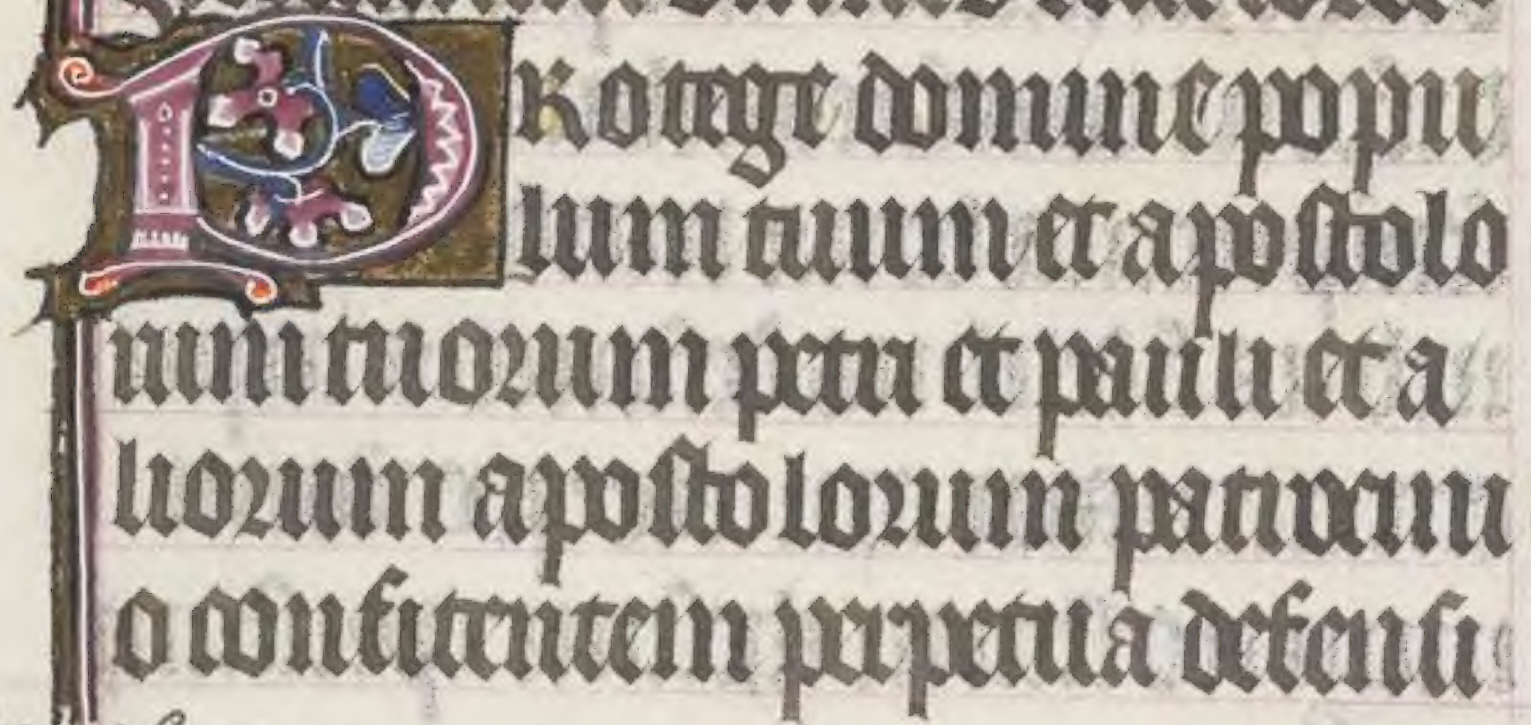 PRotege domine popu
lum tuum et apostolo
rum tuorum petri et pauli et a
liorum apostolorum patrocini
o confitentem perpetua defensi